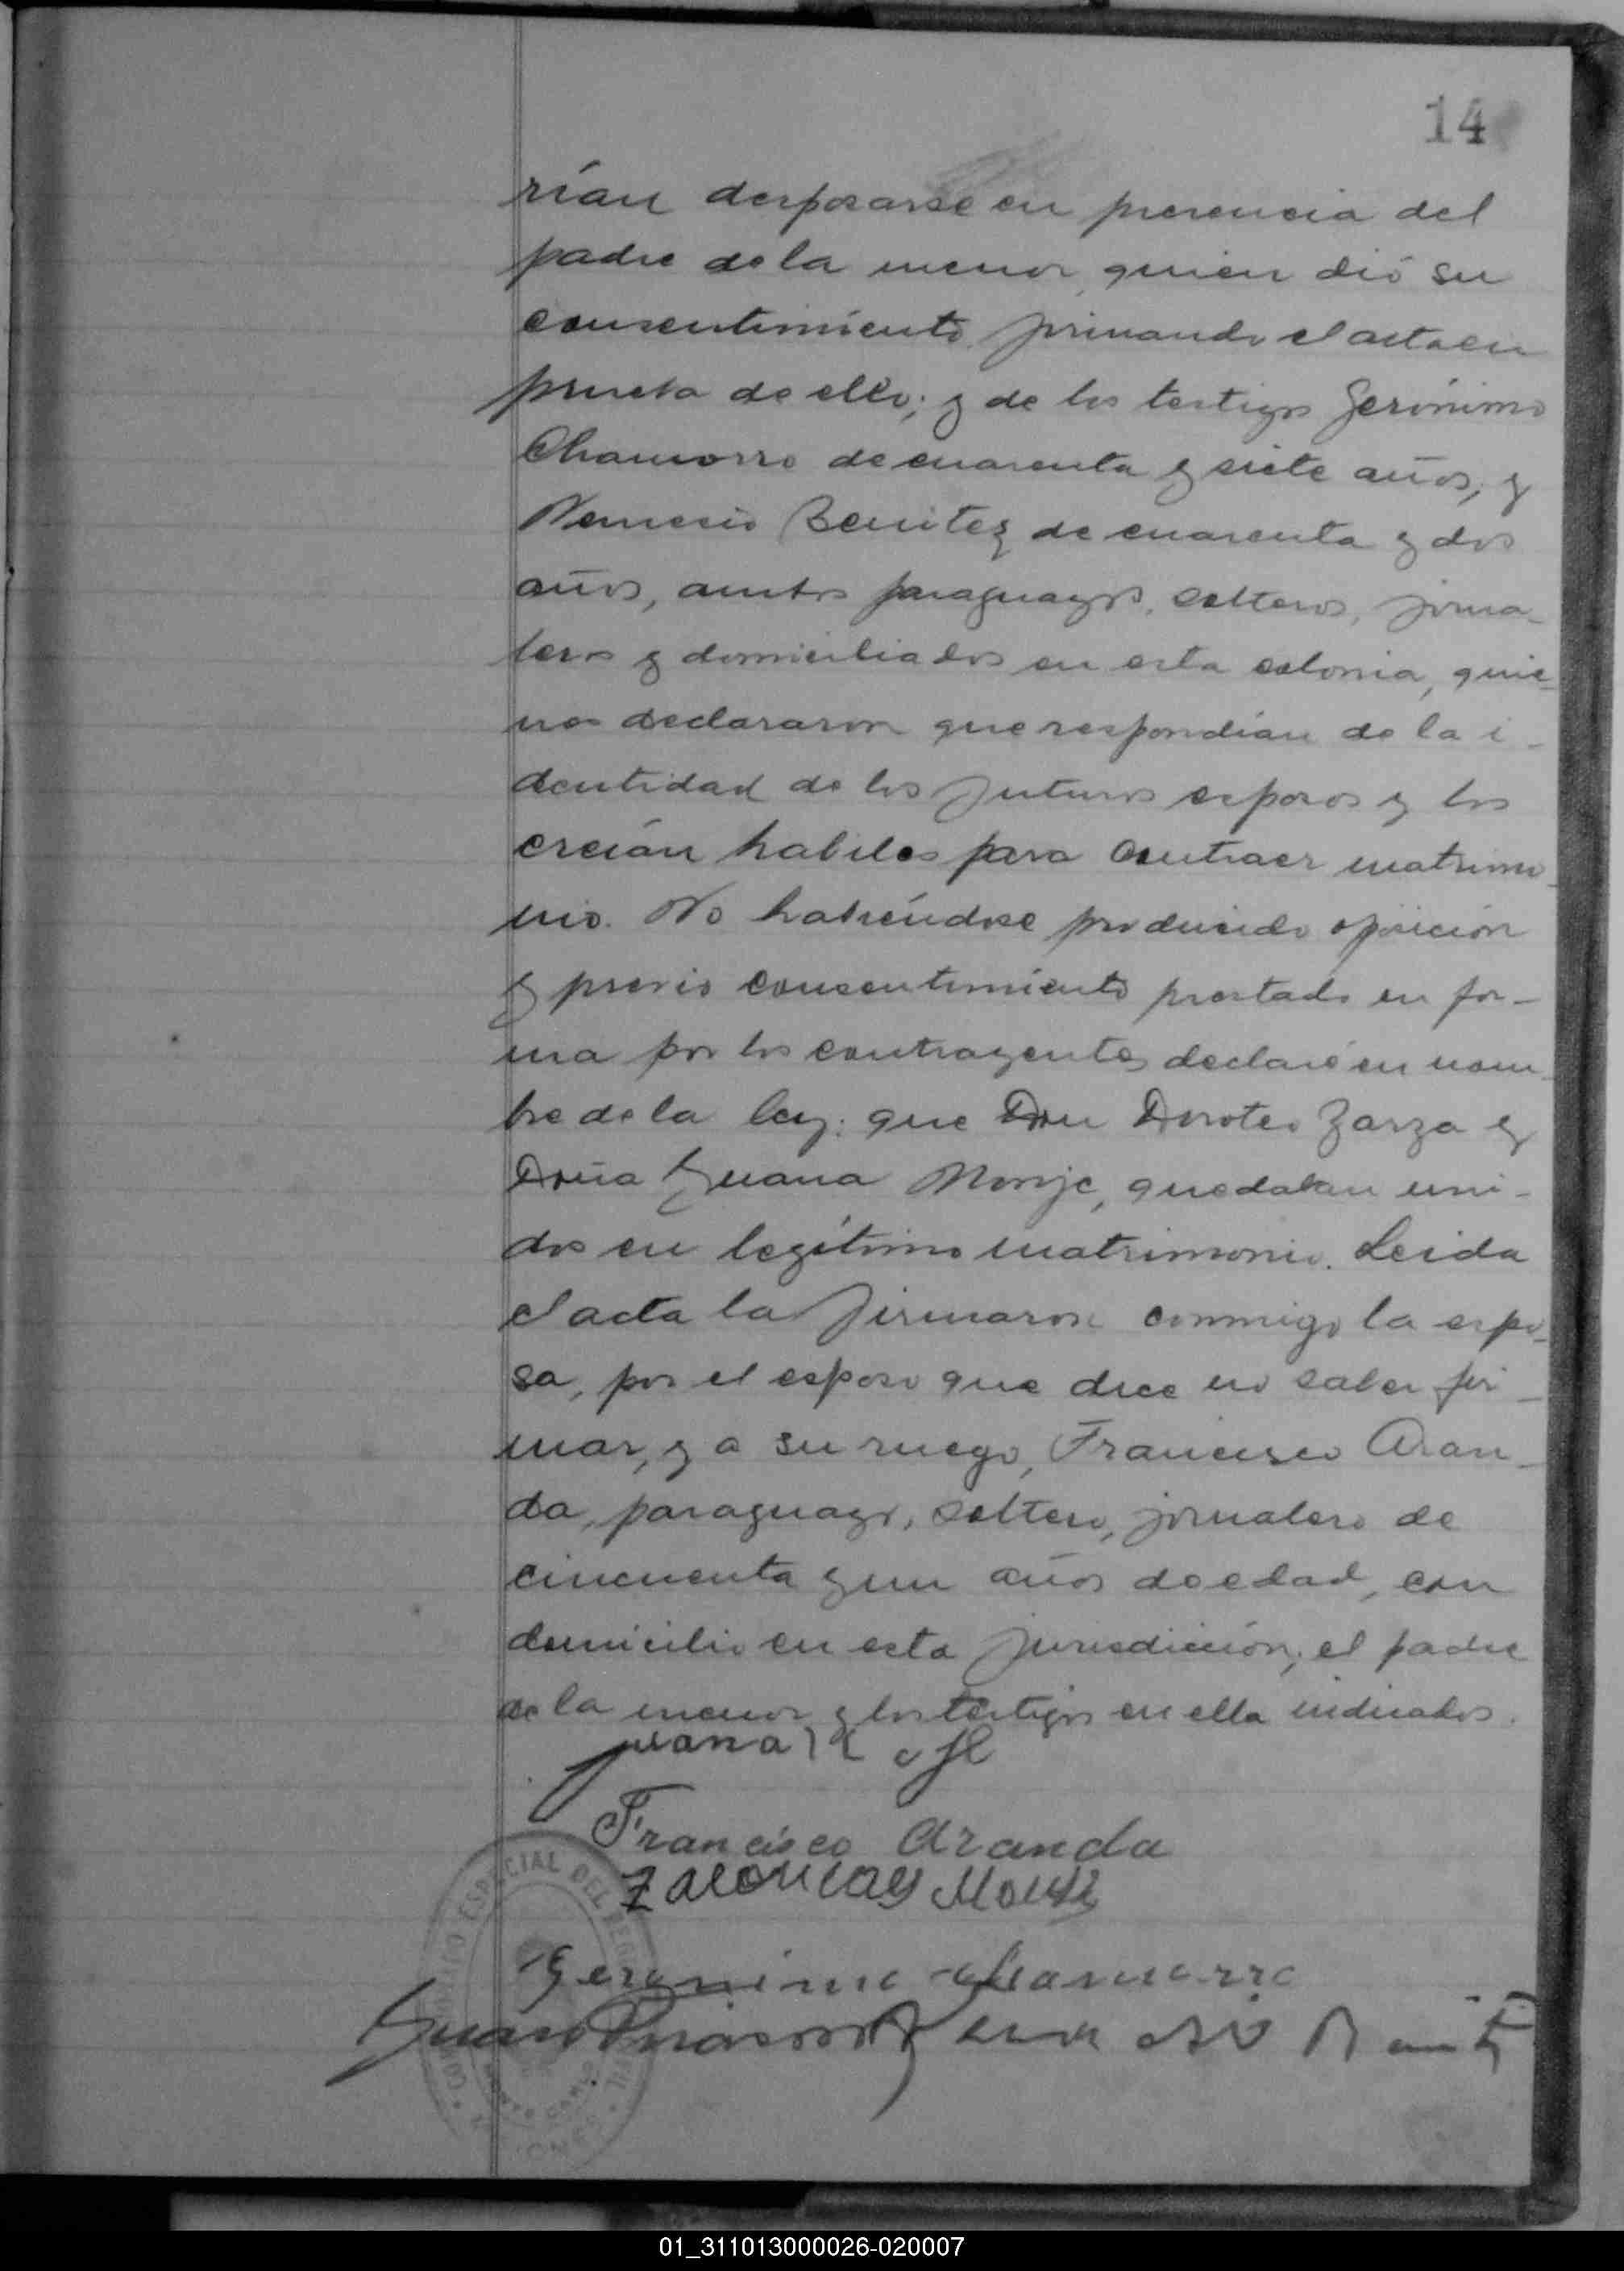 14
rían desposarse en presencia del
padre de la menor, quien dió su
consentimiento firmando el acta en
prueba de ello; y de los testigos Gerónimo
Chamorro de cuarenta y siete años, y
Nemesio Benitez de cuarenta y dos
años, ambos paraguayos, solteros, jorna-
leros y domiciliados en esta colonia, quie-
nes declararon que respondían de la i-
dentidad de los futuros esposos y los
creían habiles para contraer matrimo-
nio. No habiéndose producido oposición
y previo consentimiento prestado en for-
ma por los contrayentes declaré en nom-
bre de la ley: que Don Doroteo Zarza y
Doña Juana Monje, quedaban uni-
dos en legítimo matrimonio. Leida
el acta la firmaron conmigo la espo-
sa, por el esposo que dice no saber fir-
mar, y a su ruego, Francisco Aran-
da, paraguayo, soltero, jornalero de
cincuenta y un años de edad, con
domicilio en esta jurisdicción; el padre
de la menor y los testigos en ella indicados.
juana
Francisco Aranda
Geronimo chamorro
Juan
COMISARIATO ESPECIAL DEL CIVIL
01_311013000026-020007